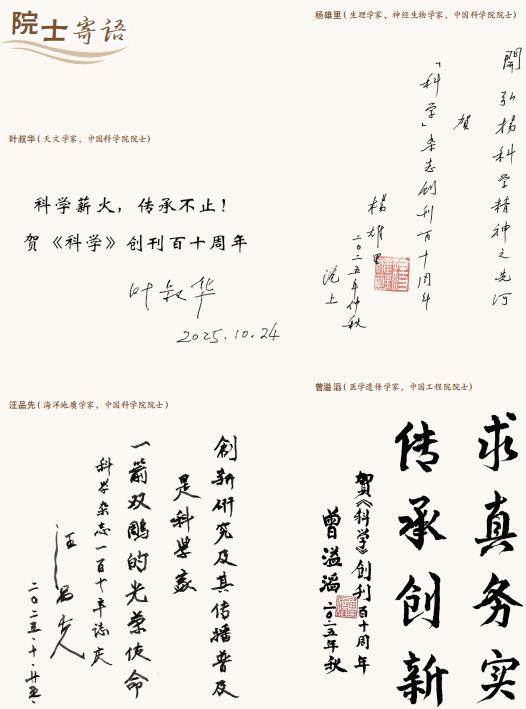 院士寄语
叶叔华(天文学家，中国科学院院士)
科学薪火，传承不止！
贺《科学》创刊百十周年
叶叔华
2025.10.24
杨雄里(生理学家、神经生物学家，中国科学院院士)
開弘杨科学精神之先河
贺
「科学」杂志创刊百十周年
杨雄里
二〇二五年仲秋
沪上
汪品先(海洋地质学家，中国科学院院士)
創新研究及其传播普及
是科学家
一箭双雕的光荣使命
科学杂志一百十年誌庆
汪品先
二〇二五·十·廿五·
曾溢滔(医学遗传学家，中国工程院院士)
求真务实
传承创新
贺《科学》创刊百十周年
曾溢滔 二〇二五年秋